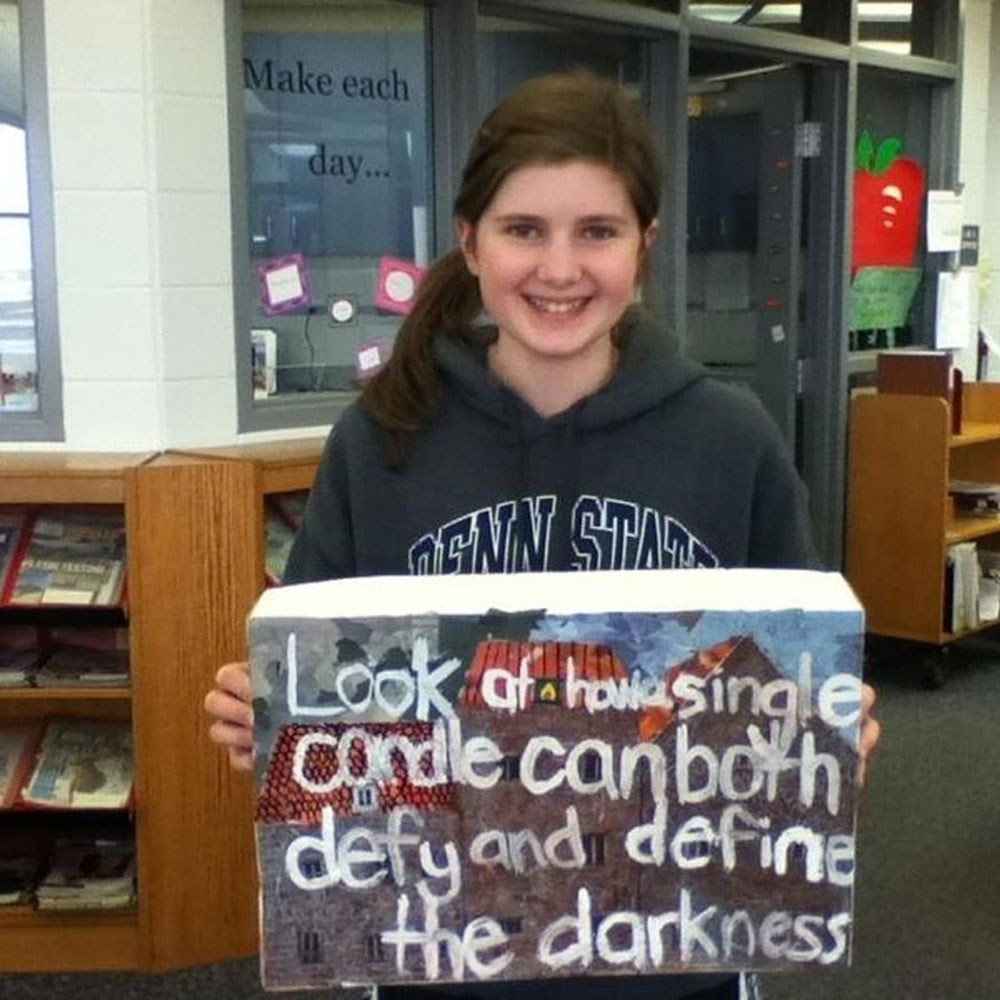 Make each
day...
PENN STATE
Look at how a single
candle can both
defy and define
the darkness